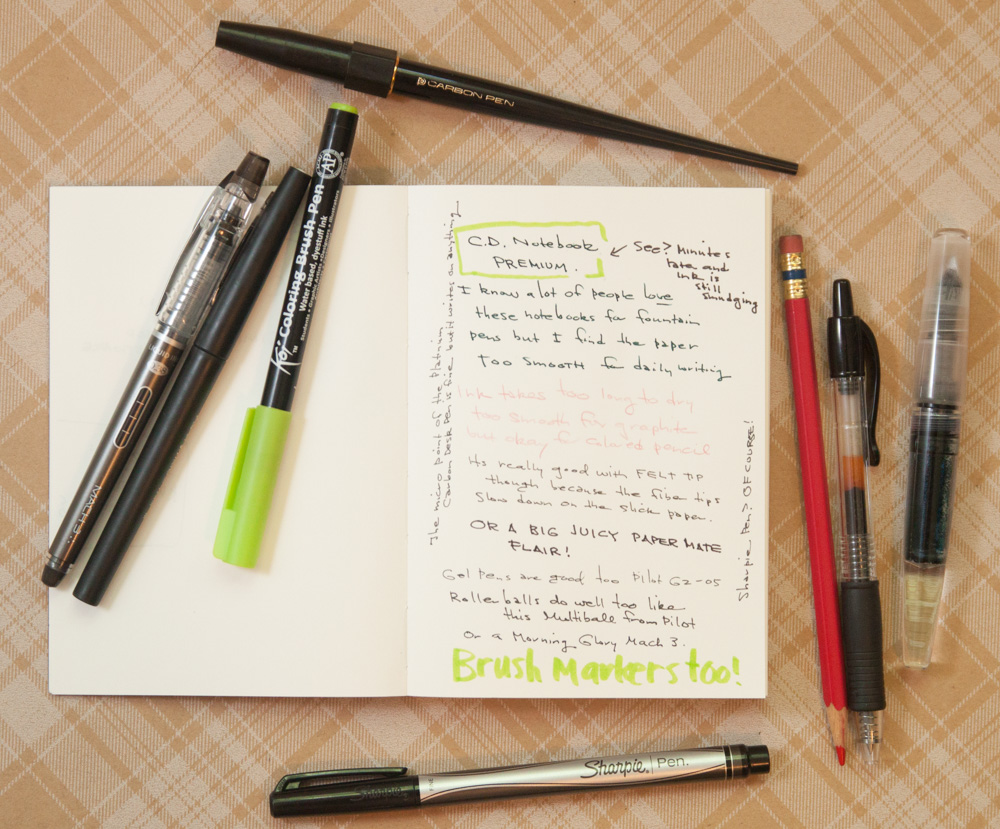 CARBON PEN
AP
Koi Coloring Brush Pen™
Water based, dyestuff ink
CELFD
MACH 3
C.D. Notebook
PREMIUM.
↙ See? Minutes
late and
ink is
still
smudging
I know a lot of people love
these notebooks for fountain
pens but I find the paper
too smooth for daily writing
Ink takes too long to dry
too smooth for graphite
but okay for colored pencil
Its really good with FELT TIP
though because the fiber tips
slow down on the slick paper.
OR A BIG JUICY PAPERMATE
FLAIR!
Gel Pens are good too Pilot G2-05
Rollerballs do well too like
this Multiball from Pilot
Or a Morning Glory Mach 3.
Brush Markers too!
The micro point of the Platinum
Carbon Desk Pen is fine but it writes on anything
Sharpie Pen? OF COURSE!
Sharpie
Sharpie. Pen.